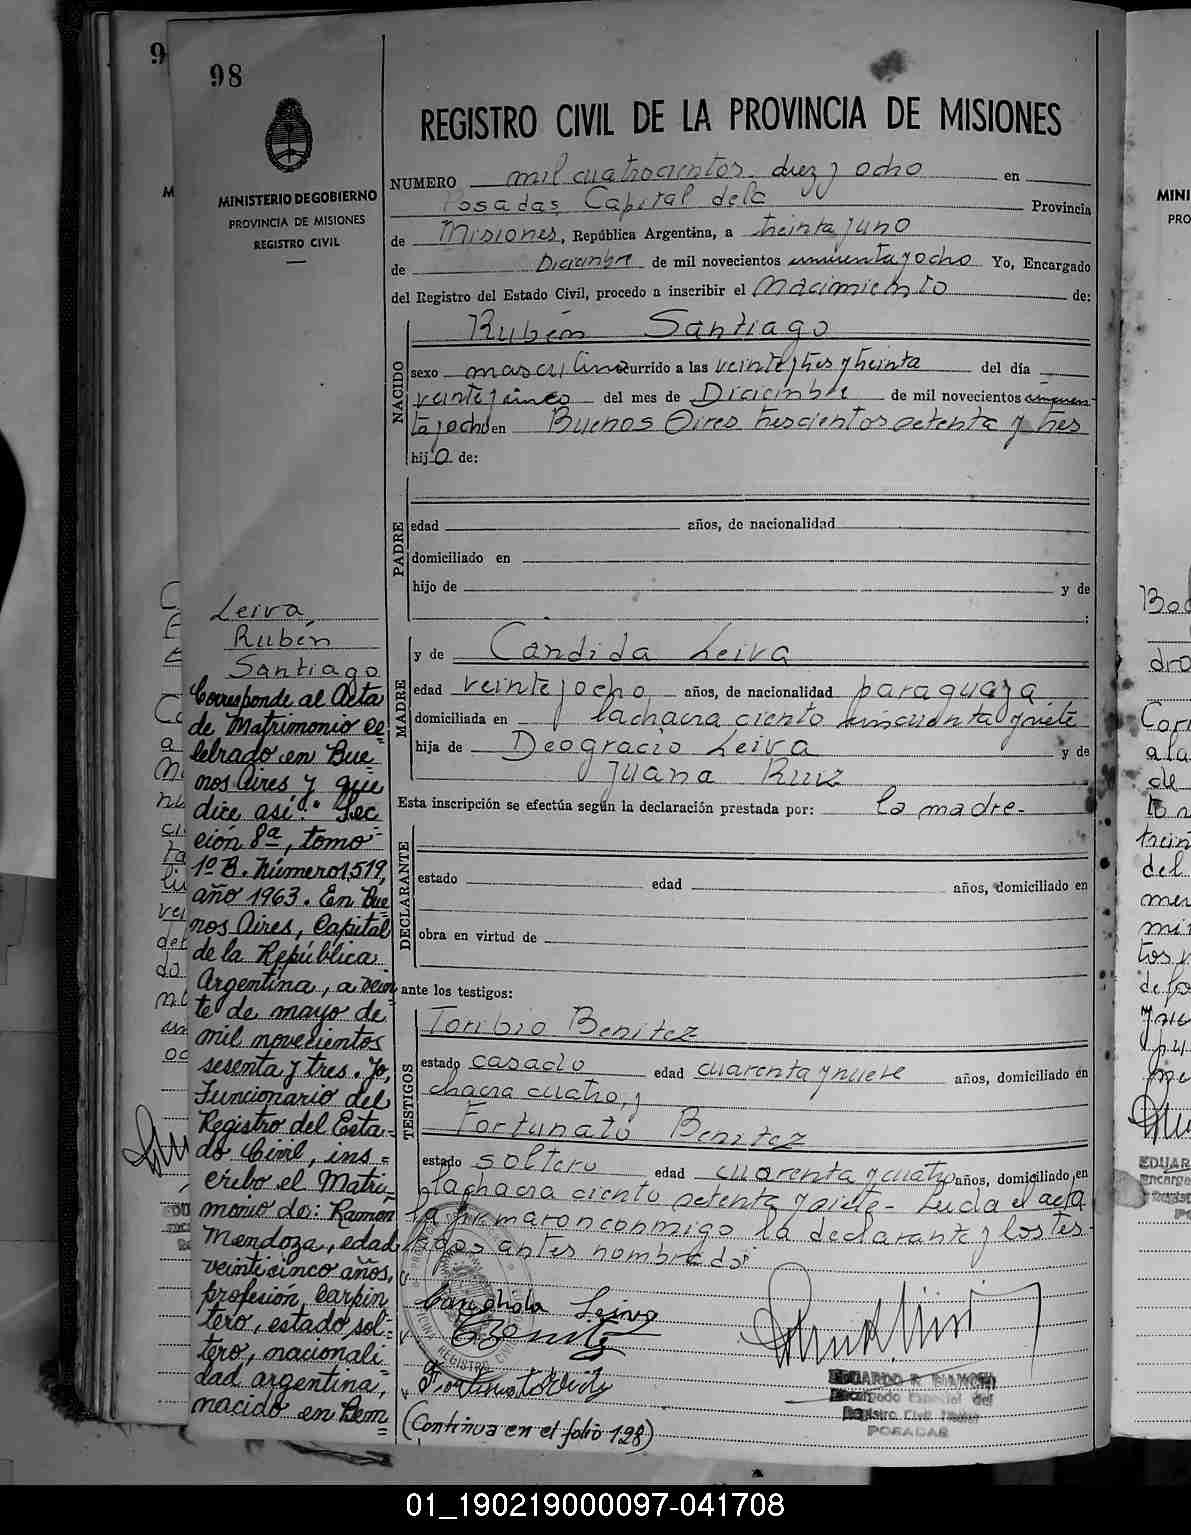 98
MINISTERIO DE GOBIERNO
PROVINCIA DE MISIONES
REGISTRO CIVIL
REGISTRO CIVIL DE LA PROVINCIA DE MISIONES
NUMERO mil cuatrocientos diez y ocho en
Posadas, Capital de la Provincia
de Misiones, República Argentina, a treinta y uno
de Diciembre de mil novecientos cincuenta y ocho Yo, Encargado
del Registro del Estado Civil, procedo a inscribir el Nacimiento de:
NACIDO
Rubén Santiago
sexo masculino ocurrido a las veinte y tres y treinta del día
veinte y cinco del mes de Diciembre de mil novecientos cincuen-
ta y ocho en Buenos Aires trescientos setenta y tres
hijo de:
PADRE
edad años, de nacionalidad
domiciliado en
hijo de y de
:
MADRE
y de Cándida Leiva
edad veinte y ocho años, de nacionalidad paraguaya
domiciliada en la chacra ciento cincuenta y siete
hija de Deogracio Leiva y de
Juana Ruiz
Esta inscripción se efectúa según la declaración prestada por: la madre-
DECLARANTE
estado edad años, domiciliado en
obra en virtud de
ante los testigos:
TESTIGOS
Toribio Benitez
estado casado edad cuarenta y nueve años, domiciliado en
chacra cuatro, y
Fortunato Benitez
estado soltero edad cuarenta y cuatro años, domiciliado en
la chacra ciento setenta y siete- Leida el acta
la firmaron conmigo la declarante y los tes-
tigos antes nombrados
Leiva
(Continua en el folio 128)
EDUARDO R.
Encargado Especial del
Registro Civil
POSADAS
Leiva
Rubén
Santiago
Corresponde al Acta
de Matrimonio ce
lebrado en Bue=
nos Aires y que
dice así: "Sec
ción 8ª, tomo=
1º B. Número 1519,
año 1963. En Bue
nos Aires, Capital
de la República
Argentina, a vein
te de mayo de
mil novecientos
sesenta y tres. Yo,
Funcionario del
Registro del Esta=
do Civil, ins=
cribo el Matri=
monio de: Ramon
Mendoza, edad
veinticinco años,
profesión, Carpin
tero, estado sol=
tero, nacionali
dad argentina,
nacido en Bem=
01_190219000097-041708